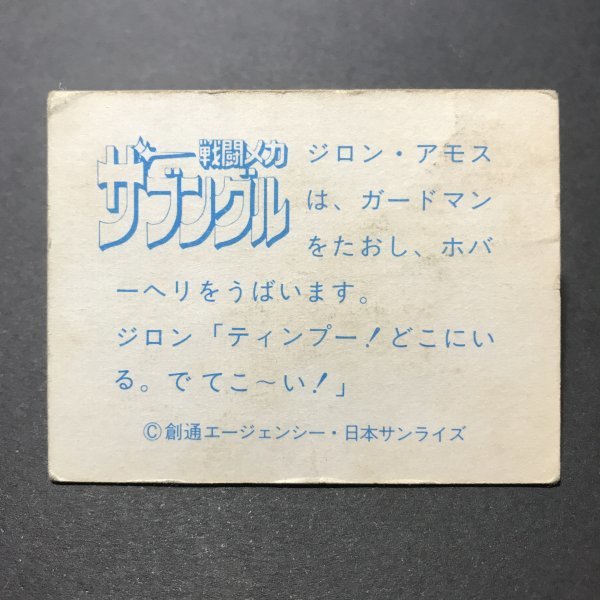 戦闘メカ
ザブングル
ジロン・アモス
は、ガードマン
をたおし、ホバ
ーヘリをうばいます。
ジロン「ティンプー!どこにい
る。でてこ〜い!」
©創通エージェンシー・日本サンライズ